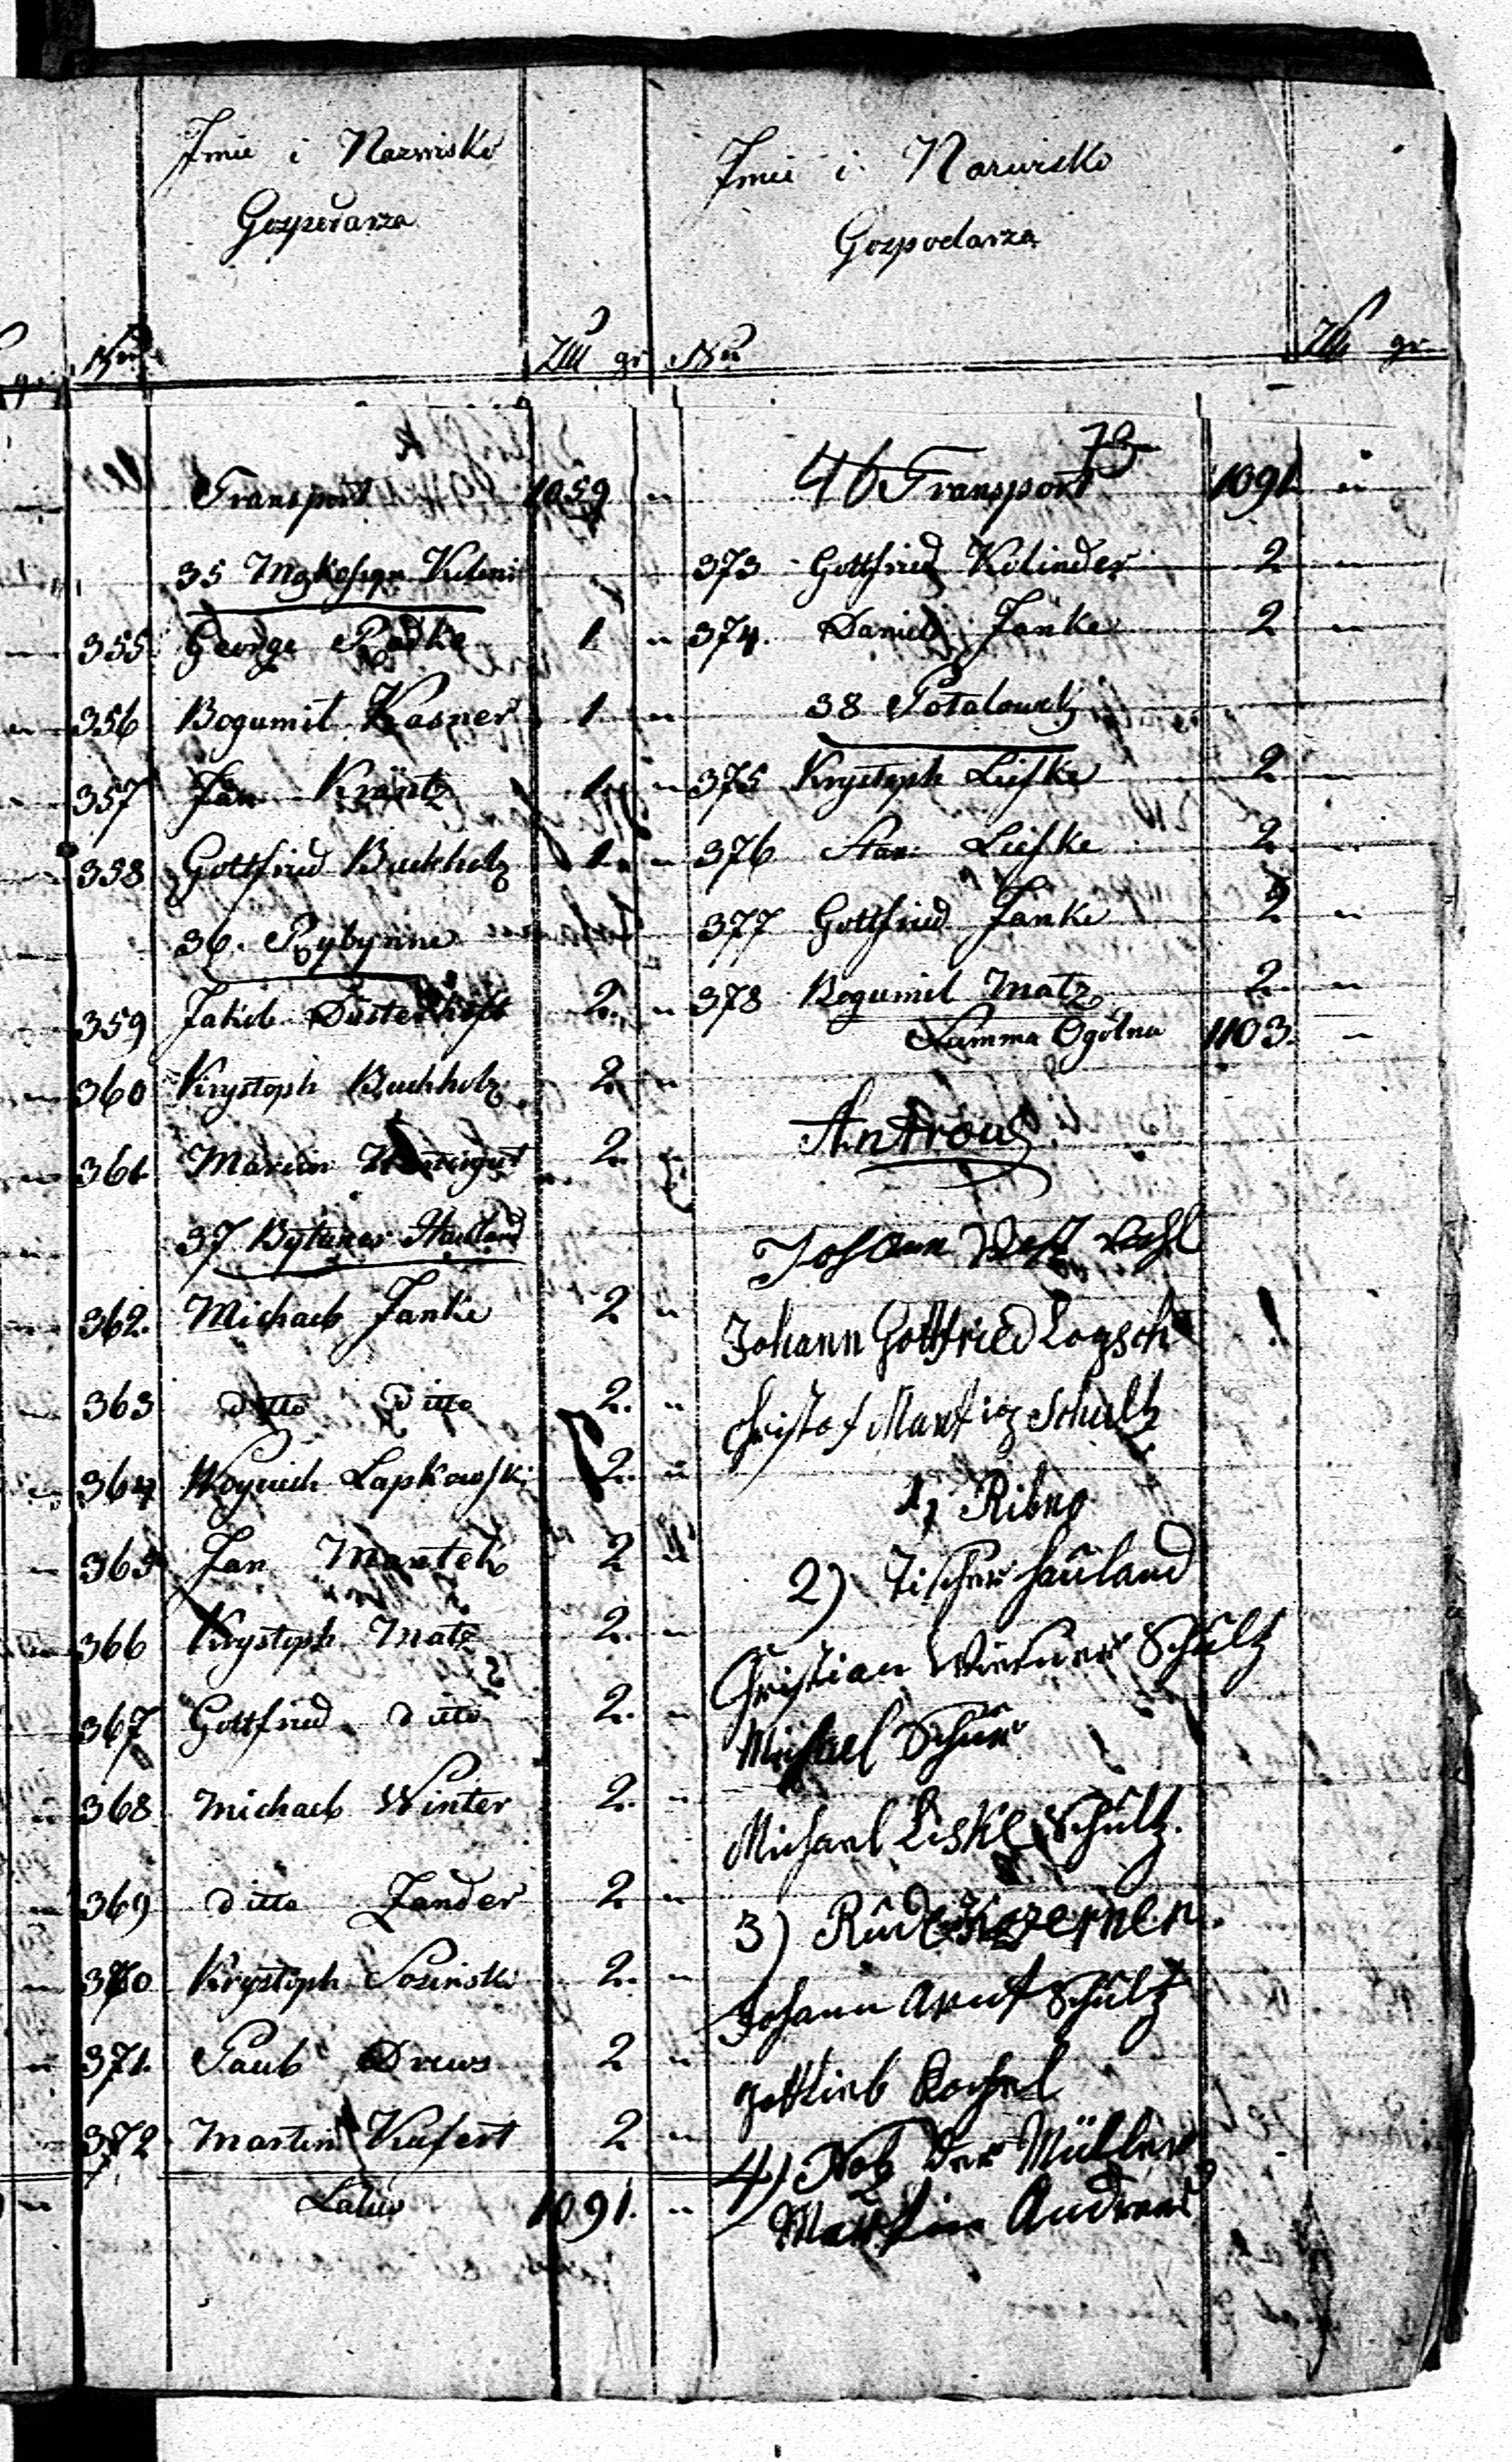 Imie i Nazwisko
Gospodarza
Nro Złł gr
Transport 1059 "
35
355 George Radke 1 "
356 Bogumił Kasner 1 "
357 Jan Kräntz 1 "
358 Gottfried Buchholz 1 "
36. Rybynne
359 Jakob Düsterhöft 2. "
360 Krystoph Buchholz 2. "
361. Marcin 2. "
37 Hauland
362. Michael Janke 2 "
363 ditto ditto 2. "
364 Woyciech Lapkowski 2. "
365 Jan Mantek 2 "
366 Krystoph Matz 2. "
367 Gottfried ditto 2. "
368 Michael Winter 2. "
369 ditto Zander 2 "
370 Krystoph Sosinski 2. "
371. Paul Drews 2 "
372 Martin Kufert 2 "
Latus 1091. "
Imie i Nazwisko
Gospodarza
Nro Złł gr
73
46 Transport 1091 "
373 Gottfried Kolinder 2 "
374. Daniel Janke 2 "
38
375 Krystoph Liefke 2 "
376 Stan: Liefke 2. "
377 Gottfried Janke 2 "
378 Bogumil Matz 2. "
Summa Ogólna 1103. "
Johann
Johann Gottfried Logsch
Christof Schultz
1, Ribno
2) Hauland
Christian Schultz
Michael
Michael Liske Schultz.
3)
Johann Arnt Schultz
Gottlieb
4) Der Müller
Martin Andreas